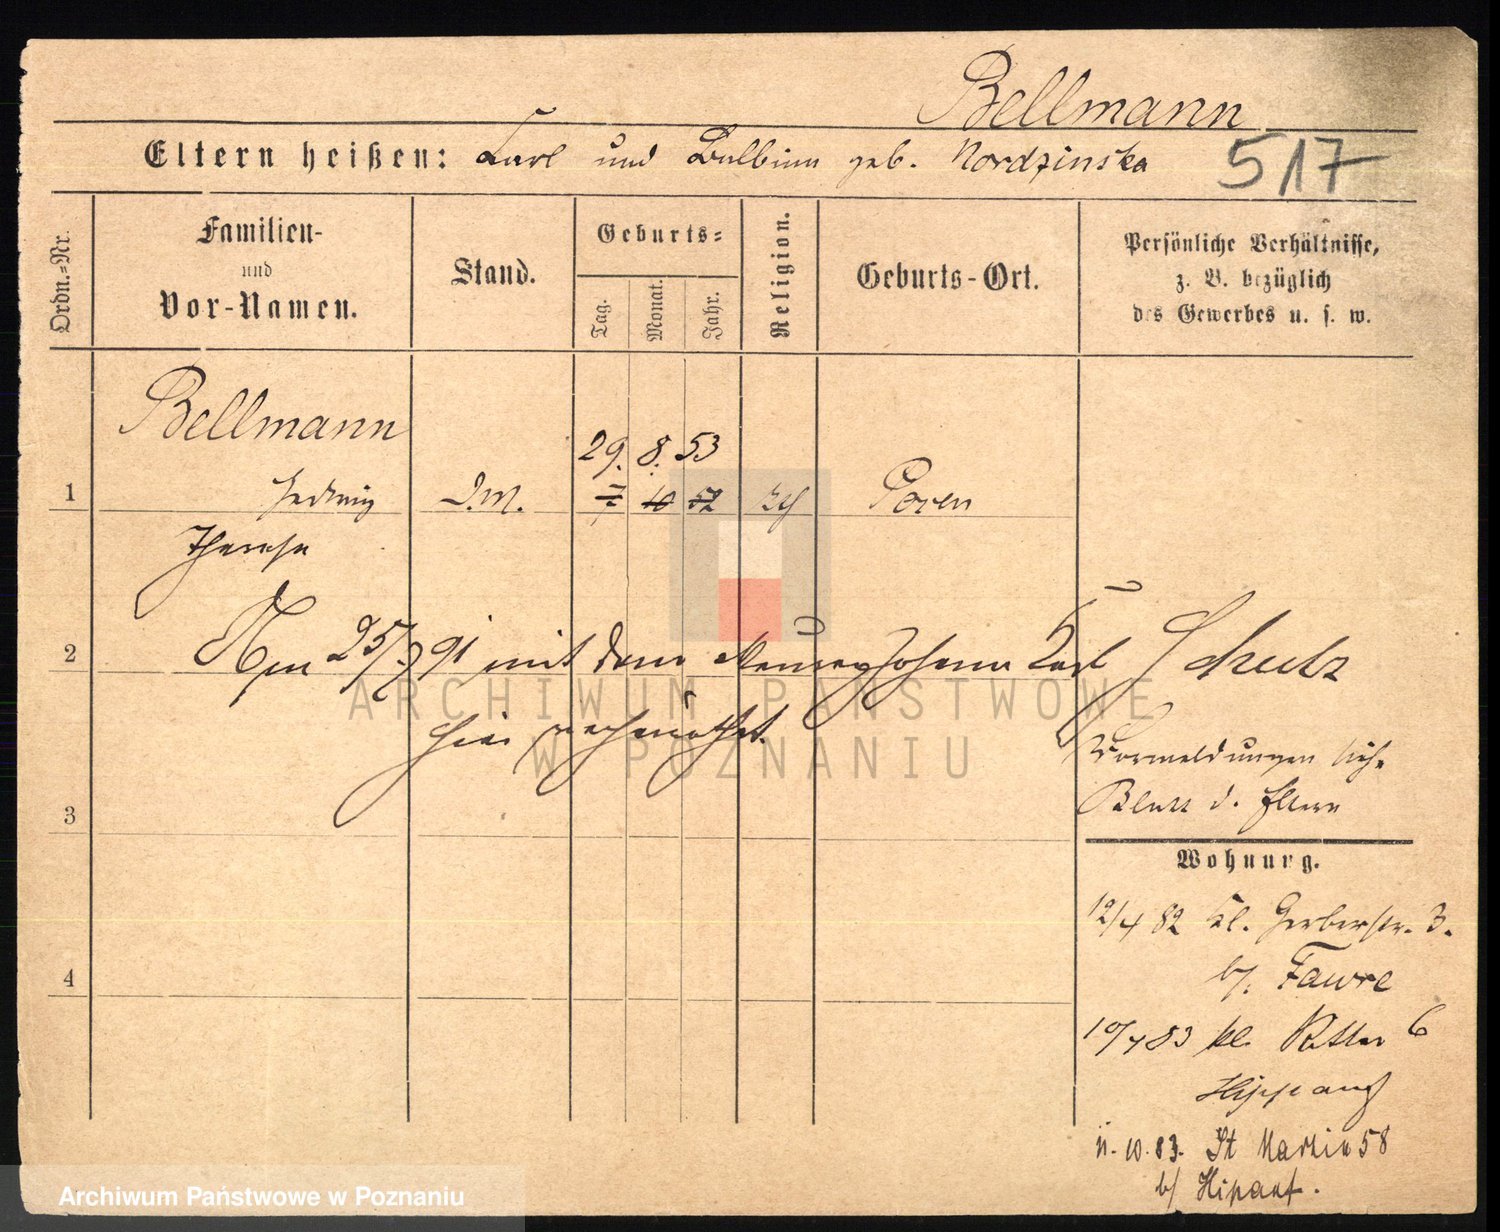 Bellmann
Eltern heißen: Karl und Balbina geb. Nordzinska
517
Ordn.-Nr.
Familien-
und
Vor-Namen.
Stand.
Geburts-
Tag.
Monat.
Jahr.
Religion.
Geburts-Ort.
Persönliche Verhältnisse,
z. B. bezüglich
des Gewerbes u. s. w.
Bellmann
29. 8. 53
1 Hedwig D.M. 7 10 52 Posen
Therese
2 Am 25/7 91 mit dem Johann Karl Schulz
hier
Vormeldungen siehe
Blatt d. Eltern
3
Wohnung.
12/4 82 Kl. Gerberstr. 3.
b/. Fawre
4
10/4 83 kl. Ritter 6
11.10.83. St Martin 58
b/ Hipauf.
ARCHIWUM PAŃSTWOWE
W POZNANIU
Archiwum Państwowe w Poznaniu